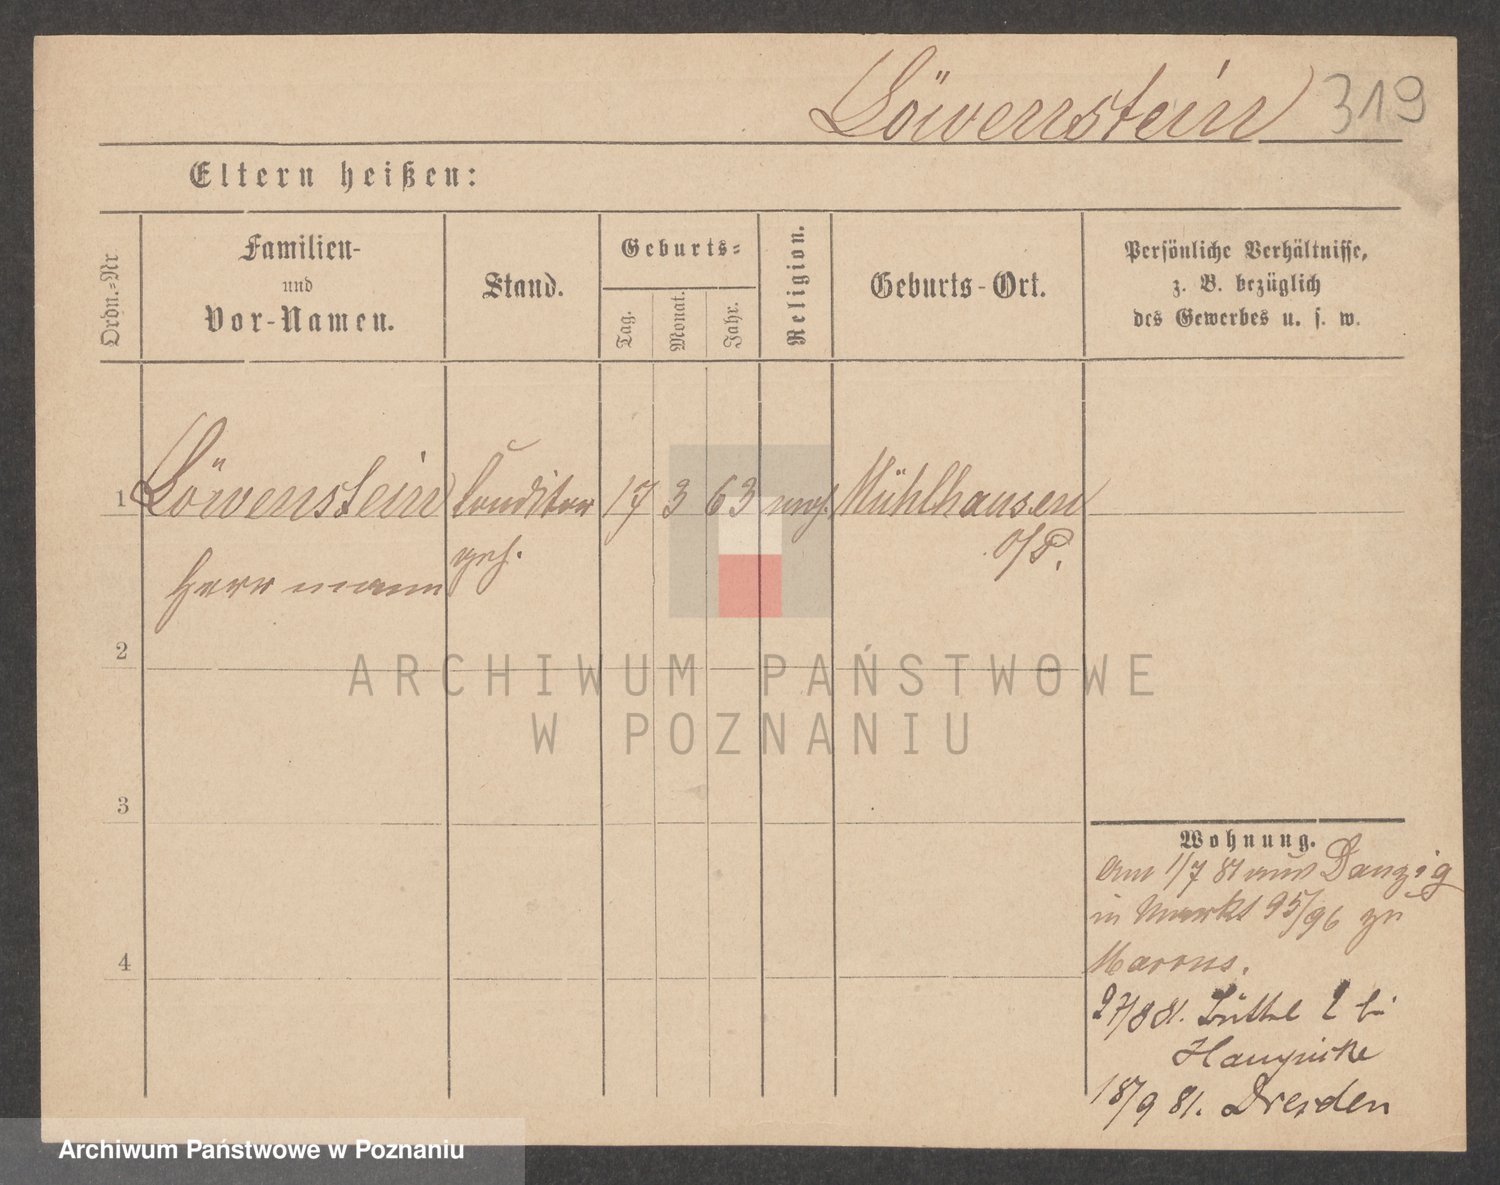 Löwenstein 319
Eltern heißen:
Ordn.=Nr
Familien-
und
Vor-Namen.
Stand.
Geburts=
Tag.
Monat.
Jahr.
Religion.
Geburts-Ort.
Persönliche Verhältnisse,
z. B. bezüglich
des Gewerbes u. s. w.
1 Löwenstein Conditor 17 3 63 mos. Mühlhausen
Herrmann geh. O/P.
2
3
4
Wohnung.
am 1/7 81 aus Danzig
in Markt 95/96 zu
27/8 81. 2 bei
18/9 81. Dresden
ARCHIWUM PAŃSTWOWE
W POZNANIU
Archiwum Państwowe w Poznaniu